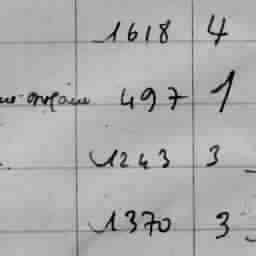 1618 4
497 1
1243 3
1370 3